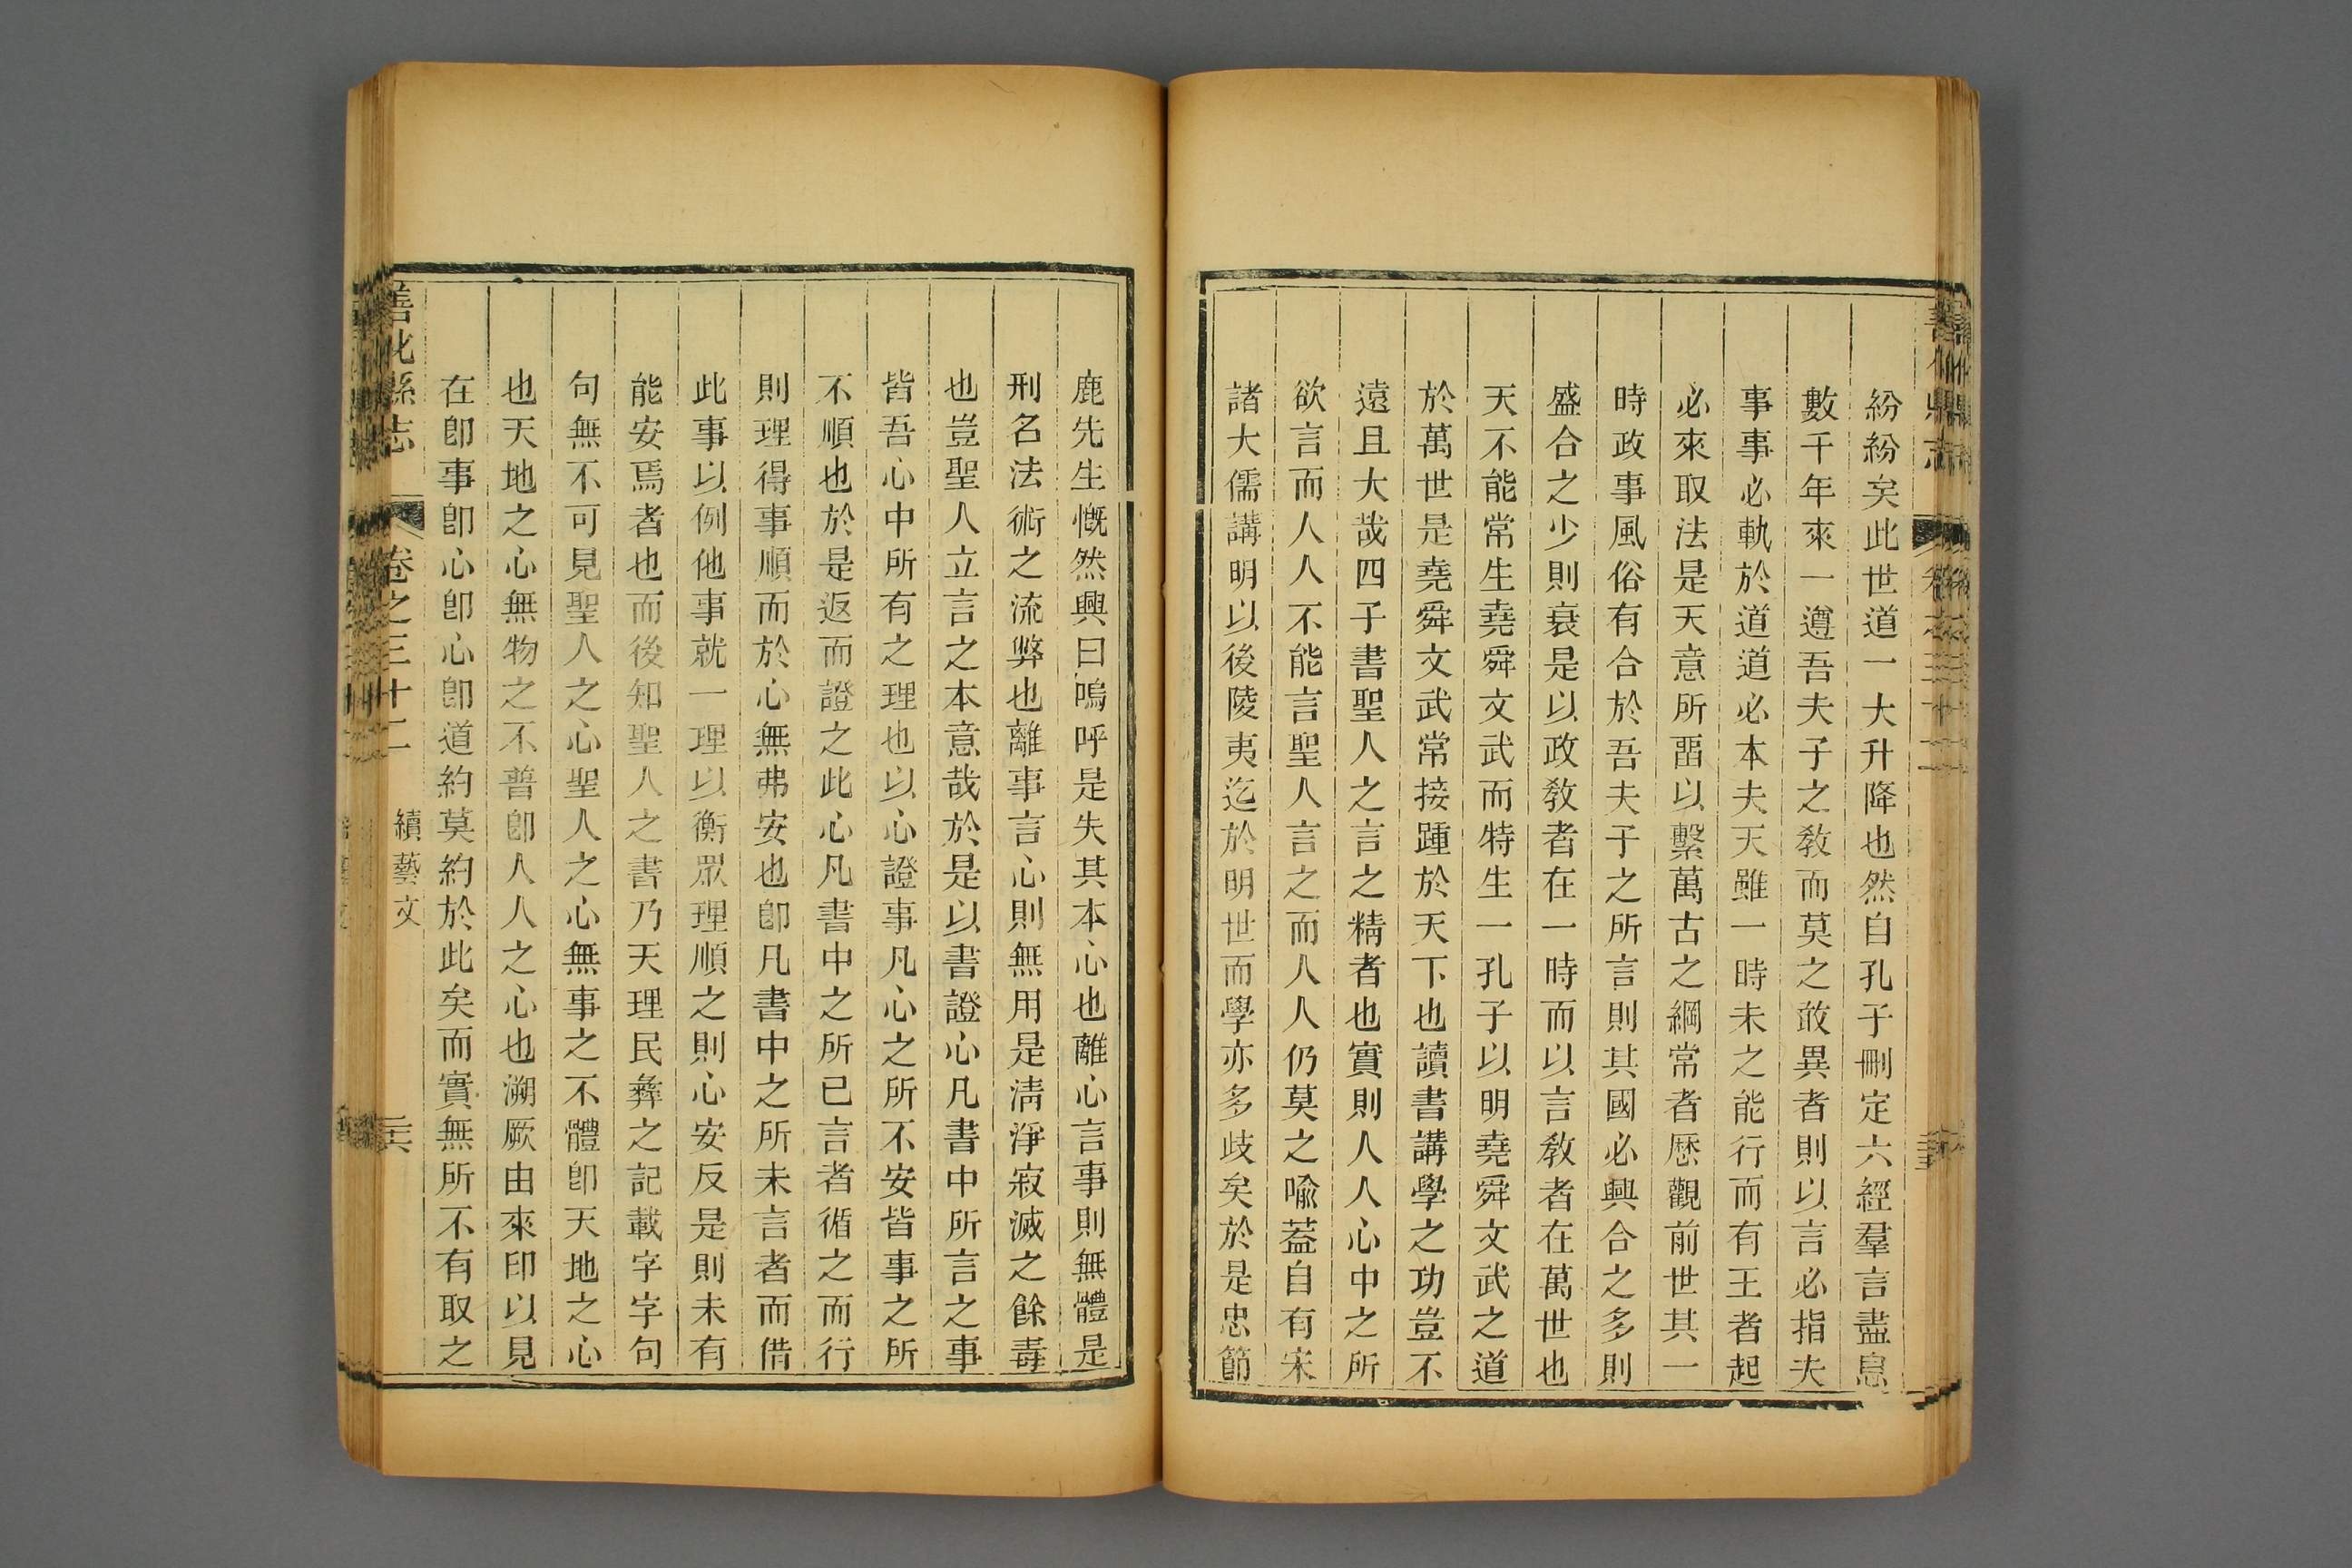 紛紛矣此世道一大升降也然自孔子刪定六經羣言盡息
數千年來一遵吾夫子之敎而莫之敢異者則以言必指夫
事事必軌於道道必本夫天天雖一時未之能行而有王者起
必來取法是天意所畱以繫萬古之綱常者歷觀前世其一
時政事風俗有合於吾夫子之所言則其國必興合之多則
盛合之少則衰是以政敎者在一時而以言敎者在萬世也
天不能常生堯舜文武而特生一孔子以明堯舜文武之道
於萬世是堯舜文武常接踵於天下也讀書講學之功豈不
遠且大哉四子書聖人之言之精者也實則人人心中之所
欲言而人人不能言聖人言之而人人仍莫之喻蓋自有宋
諸大儒講明以後陵夷迄於明世而學亦多歧矣於是忠節
鹿先生慨然興曰嗚呼是失其本心也離心言事則無體是
刑名法術之流弊也離事言心則無用是淸淨寂滅之餘毒
也豈聖人立言之本意哉於是以書證心凡書中所言之事
皆吾心中所有之理也以心證事凡心之所不安皆事之所
不順也於是返而證之此心凡書中之所已言者循之而行
則理得事順而於心無弗安也卽凡書中之所未言者而借
此事以例他事就一理以衡眾理順之則心安反是則未有
能安焉者也而後知聖人之書乃天理民彝之記載字字句
句無不可見聖人之心聖人之心無事之不體卽天地之心
也天地之心無物之不普卽人人之心也溯厥由來印以見
在卽事卽心卽心卽道約莫約於此矣而實無所不有取之
善化縣志
卷之三十二
續藝文